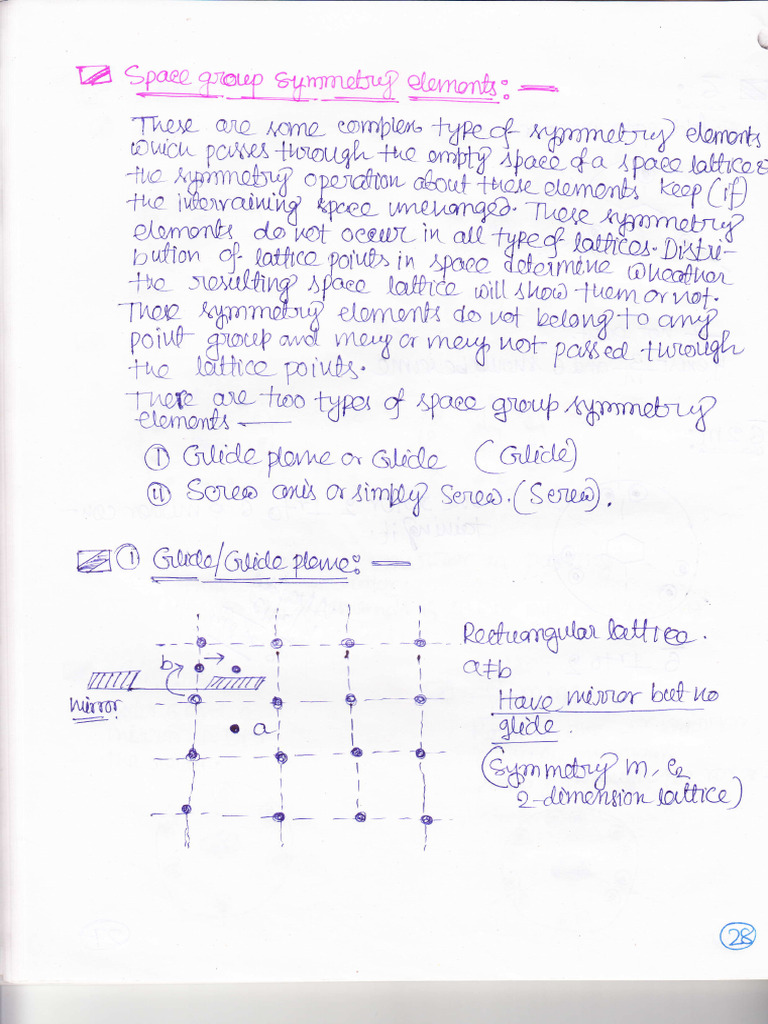 Space group symmetry elements:—
These are some complex type of symmetry elements
which passes through the empty space of a space lattice &
the symmetry operation about these elements keep (if)
the interveining space unchanged. These symmetry
elements do not occur in all type of lattices. Distri-
bution of lattice points in space determine wheather
the resulting space lattice will show them or not.
These symmetry elements do not belong to any
point group and may or may not passed through
the lattice points.
There are two types of space group symmetry
elements —
(i) Glide plane or Glide (Glide)
(ii) Screw axis or simply screw. (Screw).
(i) Glide/Glide plane:—
Rectangular lattice.
a≠b
b
Have mirror but no
mirror
glide.
a
(Symmetry m, c2
2-dimension lattice)
28